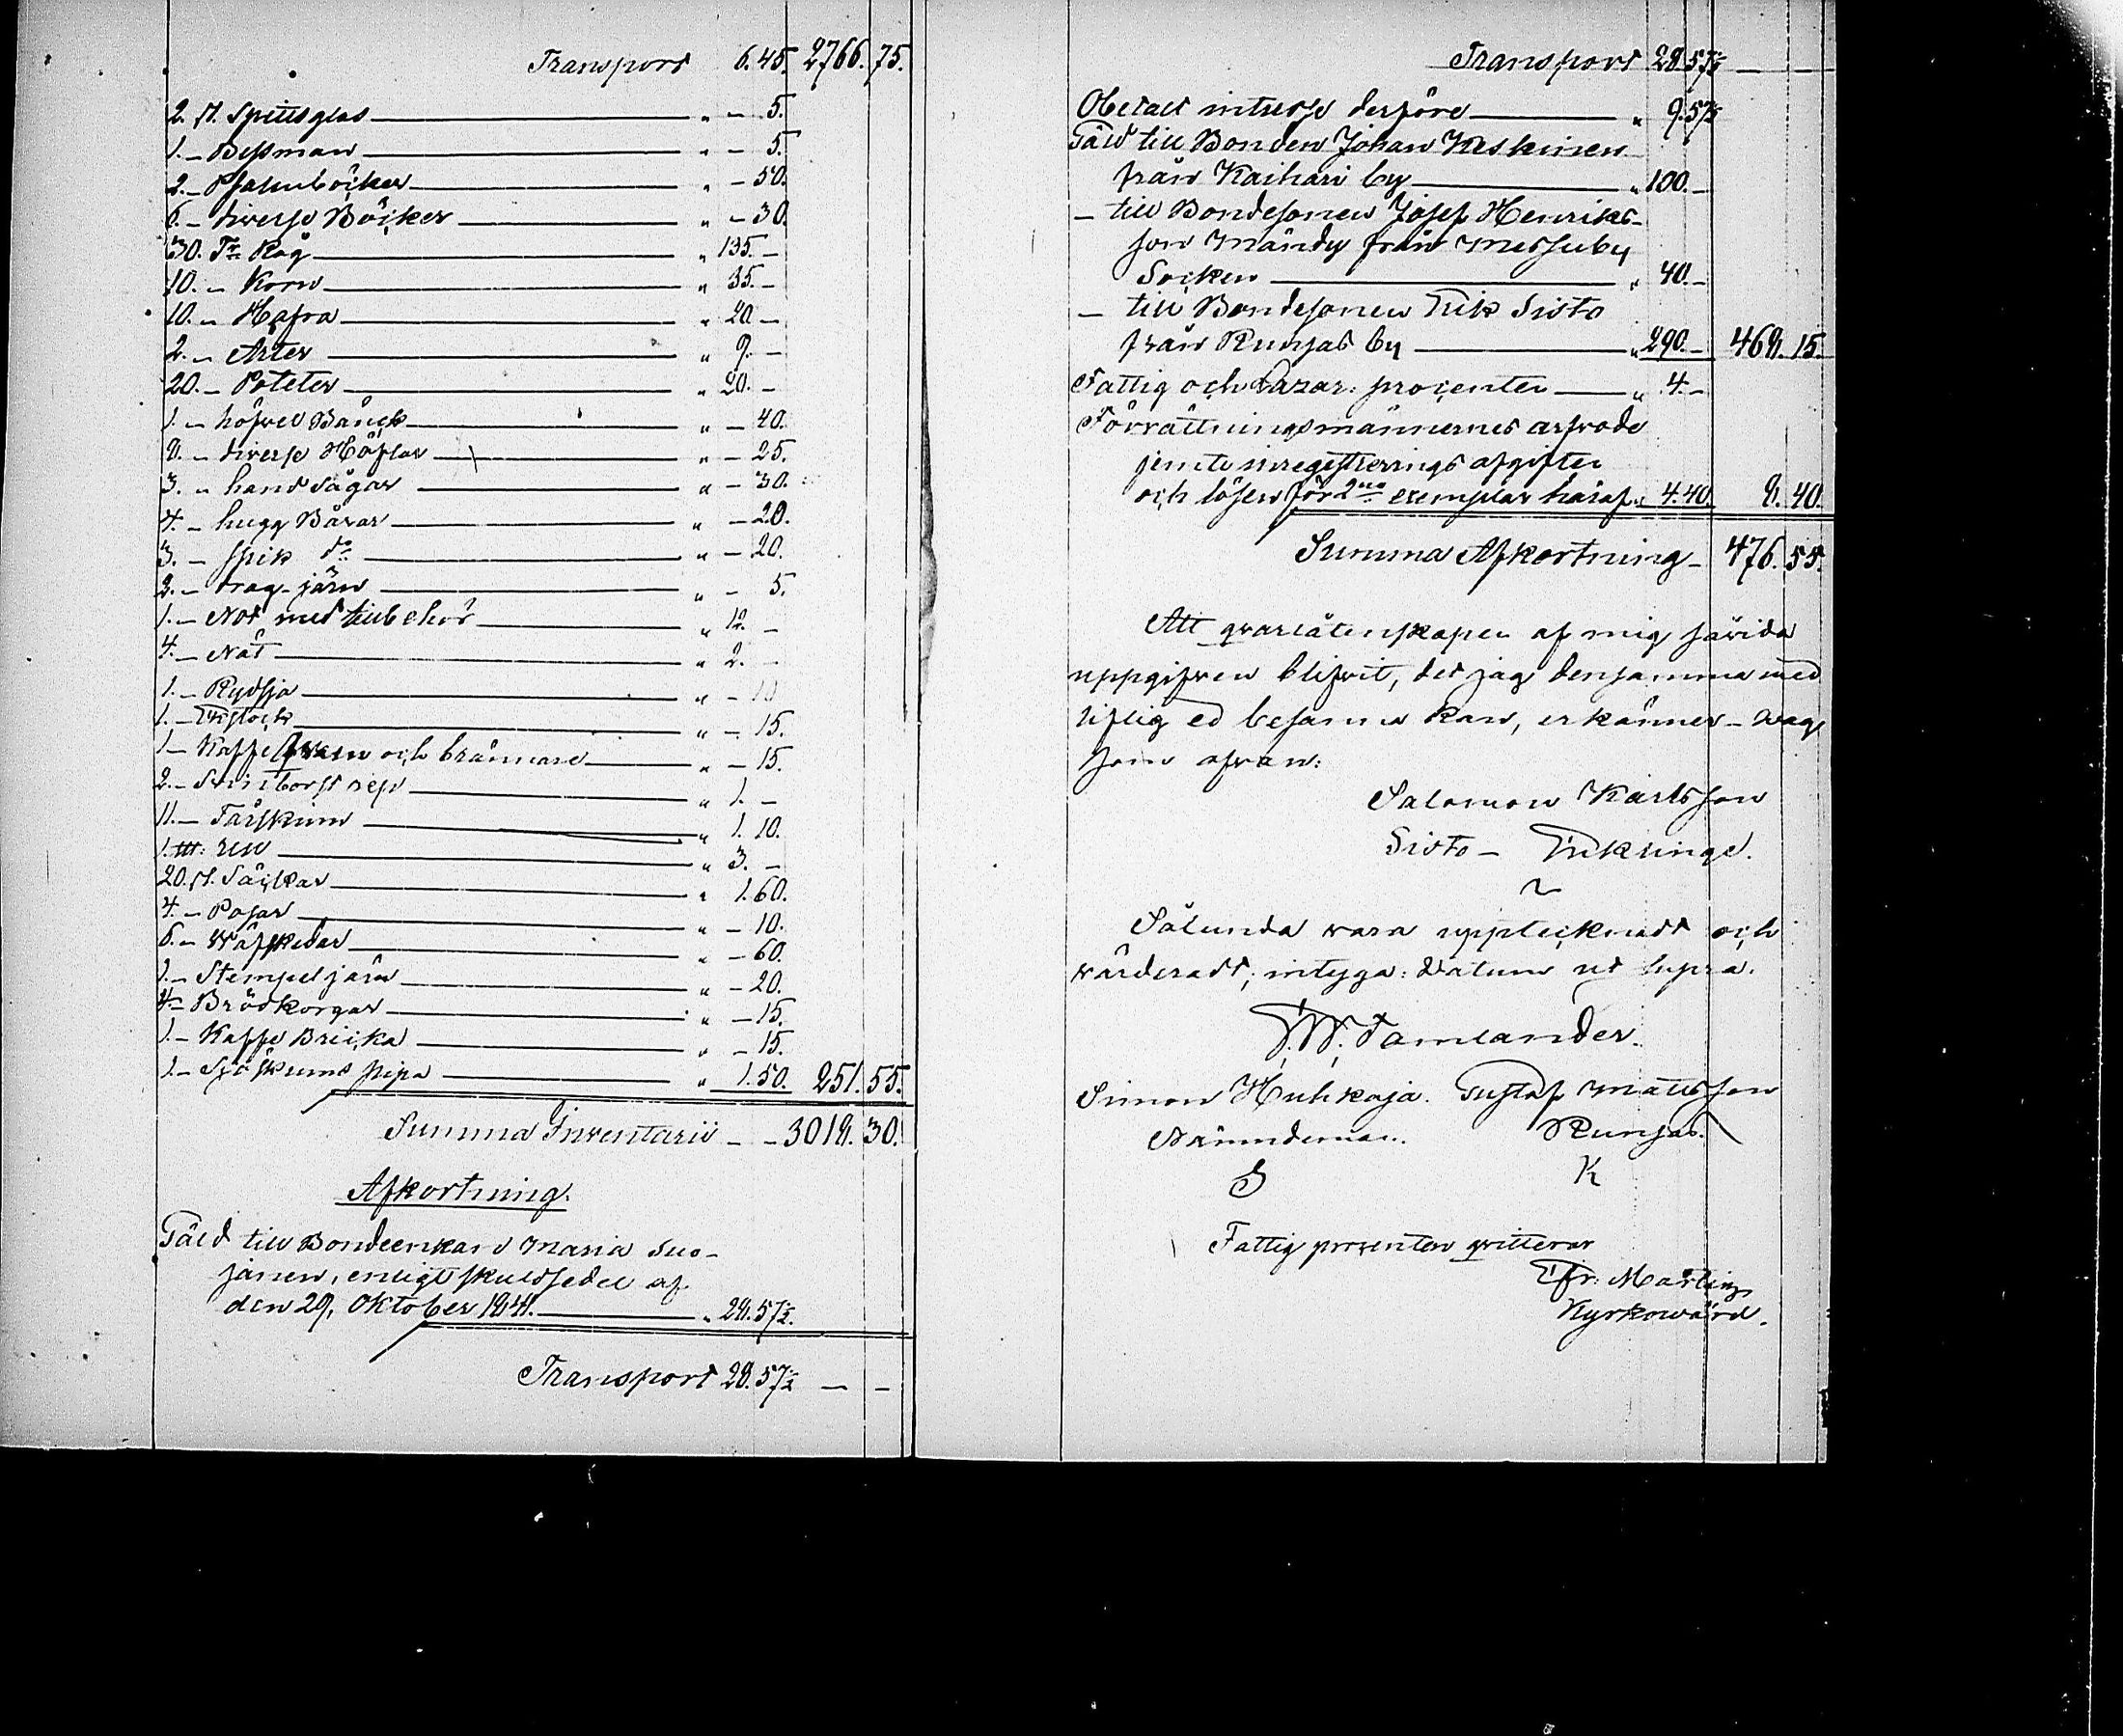 Transport 6.45. 2766.75.
2. st. Spittsglas " - 5.
1. - Besman " - 5.
2. - Psalmböcker " - 50.
6. - diverse Böcker " - 30.
30. Tr Råg " 135. -
10. " Korn " 35. -
10. " Hafra " 20. -
2. " Ärter " 9. -
20. - Poteter " 20. -
1. - höfvel Bänck " - 40.
8. - diverse Höflar " - 25.
3. " hand Sågar " - 30.
4. - hugg Bårar " - 20.
3. - spik do " - 20.
2. - drag-järn " - 5.
1. - Not med tillbehör " 12. -
4. - Nät " 2. -
1. - Rydsja " - 10
1. - " - 15.
1 - Kaffe qvarn och brännare " - 15.
2. - Svinborst rep " 1. -
11. - Fårskinn " 1.10.
1. " 3. -
20. st. Säckar " 1.60.
4. - Påsar " - 10.
6. - Väfskedar " - 60.
1. - Stempeljärn " - 20.
4 - Brödkorgar " - 15.
1. - Kaffe Bricka " - 15.
1. - Sjöskums pipa " 1.50. 251.55.
Summa Inventarii - - 3018.30.
Afkortning.
Gäld till Bondeenkan Maria Suo-
janen, enligt skuldsedel af
den 29. Oktober 1841. " 28.57½.
Transport 28.57½ - -
Transport 28.57½ - -
Obetalt intresse derföre " 9.57½
Gäld till Bonden Johan Keskinen
från Kaihari by " 100. -
- till Bondesonen Josef Henriks-
son Mändy från Messuby
Socken " 40. -
- till Bondesonen Erik Sisto
från Runsas by " 290. - 468.15.
Fattig och Lazar: procenten " 4. -
Förrättningsmännernes arfvode
jemte inregistrerings afgifter
och lösen för 2ne exemplar häraf " 4.40. 8.40.
Summa Afkortning - 476.55.
Att qvarlåtenskapen af mig såvida
uppgifven blifvit, det jag densamma med
liflig ed besanna kan, erkänner - dag
som ofvan:
Salomon Karlsson
Sisto - Enklinge.
Sålunda vara upptecknadt och
värderadt, intyga: Datum ut supra.
Tamlander.
Simon Huhkaja. Gustaf Mattsson
Nämndeman. Runsas.
S K
Fattig procenten qvitterar
Efr: Marling
Kyrkovärd.